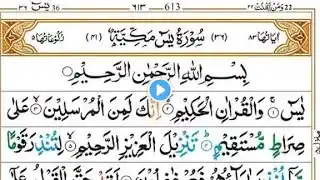 يٰسٓ ٣٦ ٦١٣ 613 ومن يقنت ٢٢ 22
اٰيَاتُهَا ٨٣ (٣٦) سُوْرَةُ يٰسٓ مَكِّيَّةٌ (٤١) رُكُوْعَاتُهَا ٥
بِسْمِ اللهِ الرَّحْمٰنِ الرَّحِيْمِ
يٰسٓ ۝ وَالْقُرْاٰنِ الْحَكِيْمِ ۝ اِنَّكَ لَمِنَ الْمُرْسَلِيْنَ ۝ عَلٰى
صِرَاطٍ مُّسْتَقِيْمٍ ۝ تَنْزِيْلَ الْعَزِيْزِ الرَّحِيْمِ ۝ لِتُنْذِرَ قَوْمًا